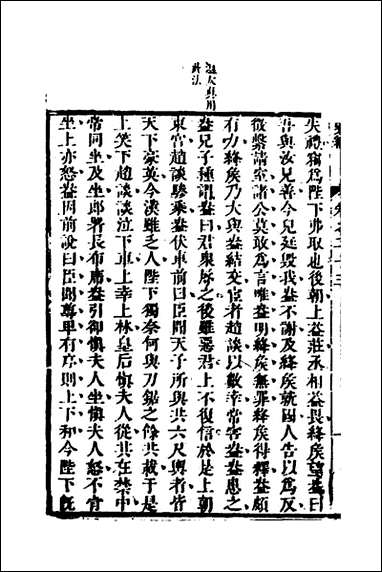 溫太真用
此法
失禮竊為陛下弗取也後朝上益莊丞相益畏絳侯望盎曰
吾與汝兄善今兒廷毀我盎不謝及絳侯就國人告以為反
徵繫請室諸公莫敢為言唯盎明絳侯無罪絳侯得釋盎頗
有力絳侯乃大與盎結交宦者趙談以數幸常害盎盎患之
盎兄子種說盎曰君衆辱之後雖惡君上不復信於是上朝
東宮趙談驂乘盎伏車前曰臣聞天子所與共六尺輿者皆
天下豪英今漢雖乏人陛下獨奈何與刀鋸之餘共載于是
上笑下趙談談泣下車上幸上林皇后慎夫人從其在禁中
常同坐及坐郎署長布席盎引卻慎夫人坐慎夫人怒不肯
坐上亦怒盎因前說曰臣聞尊卑有序則上下和今陛下既